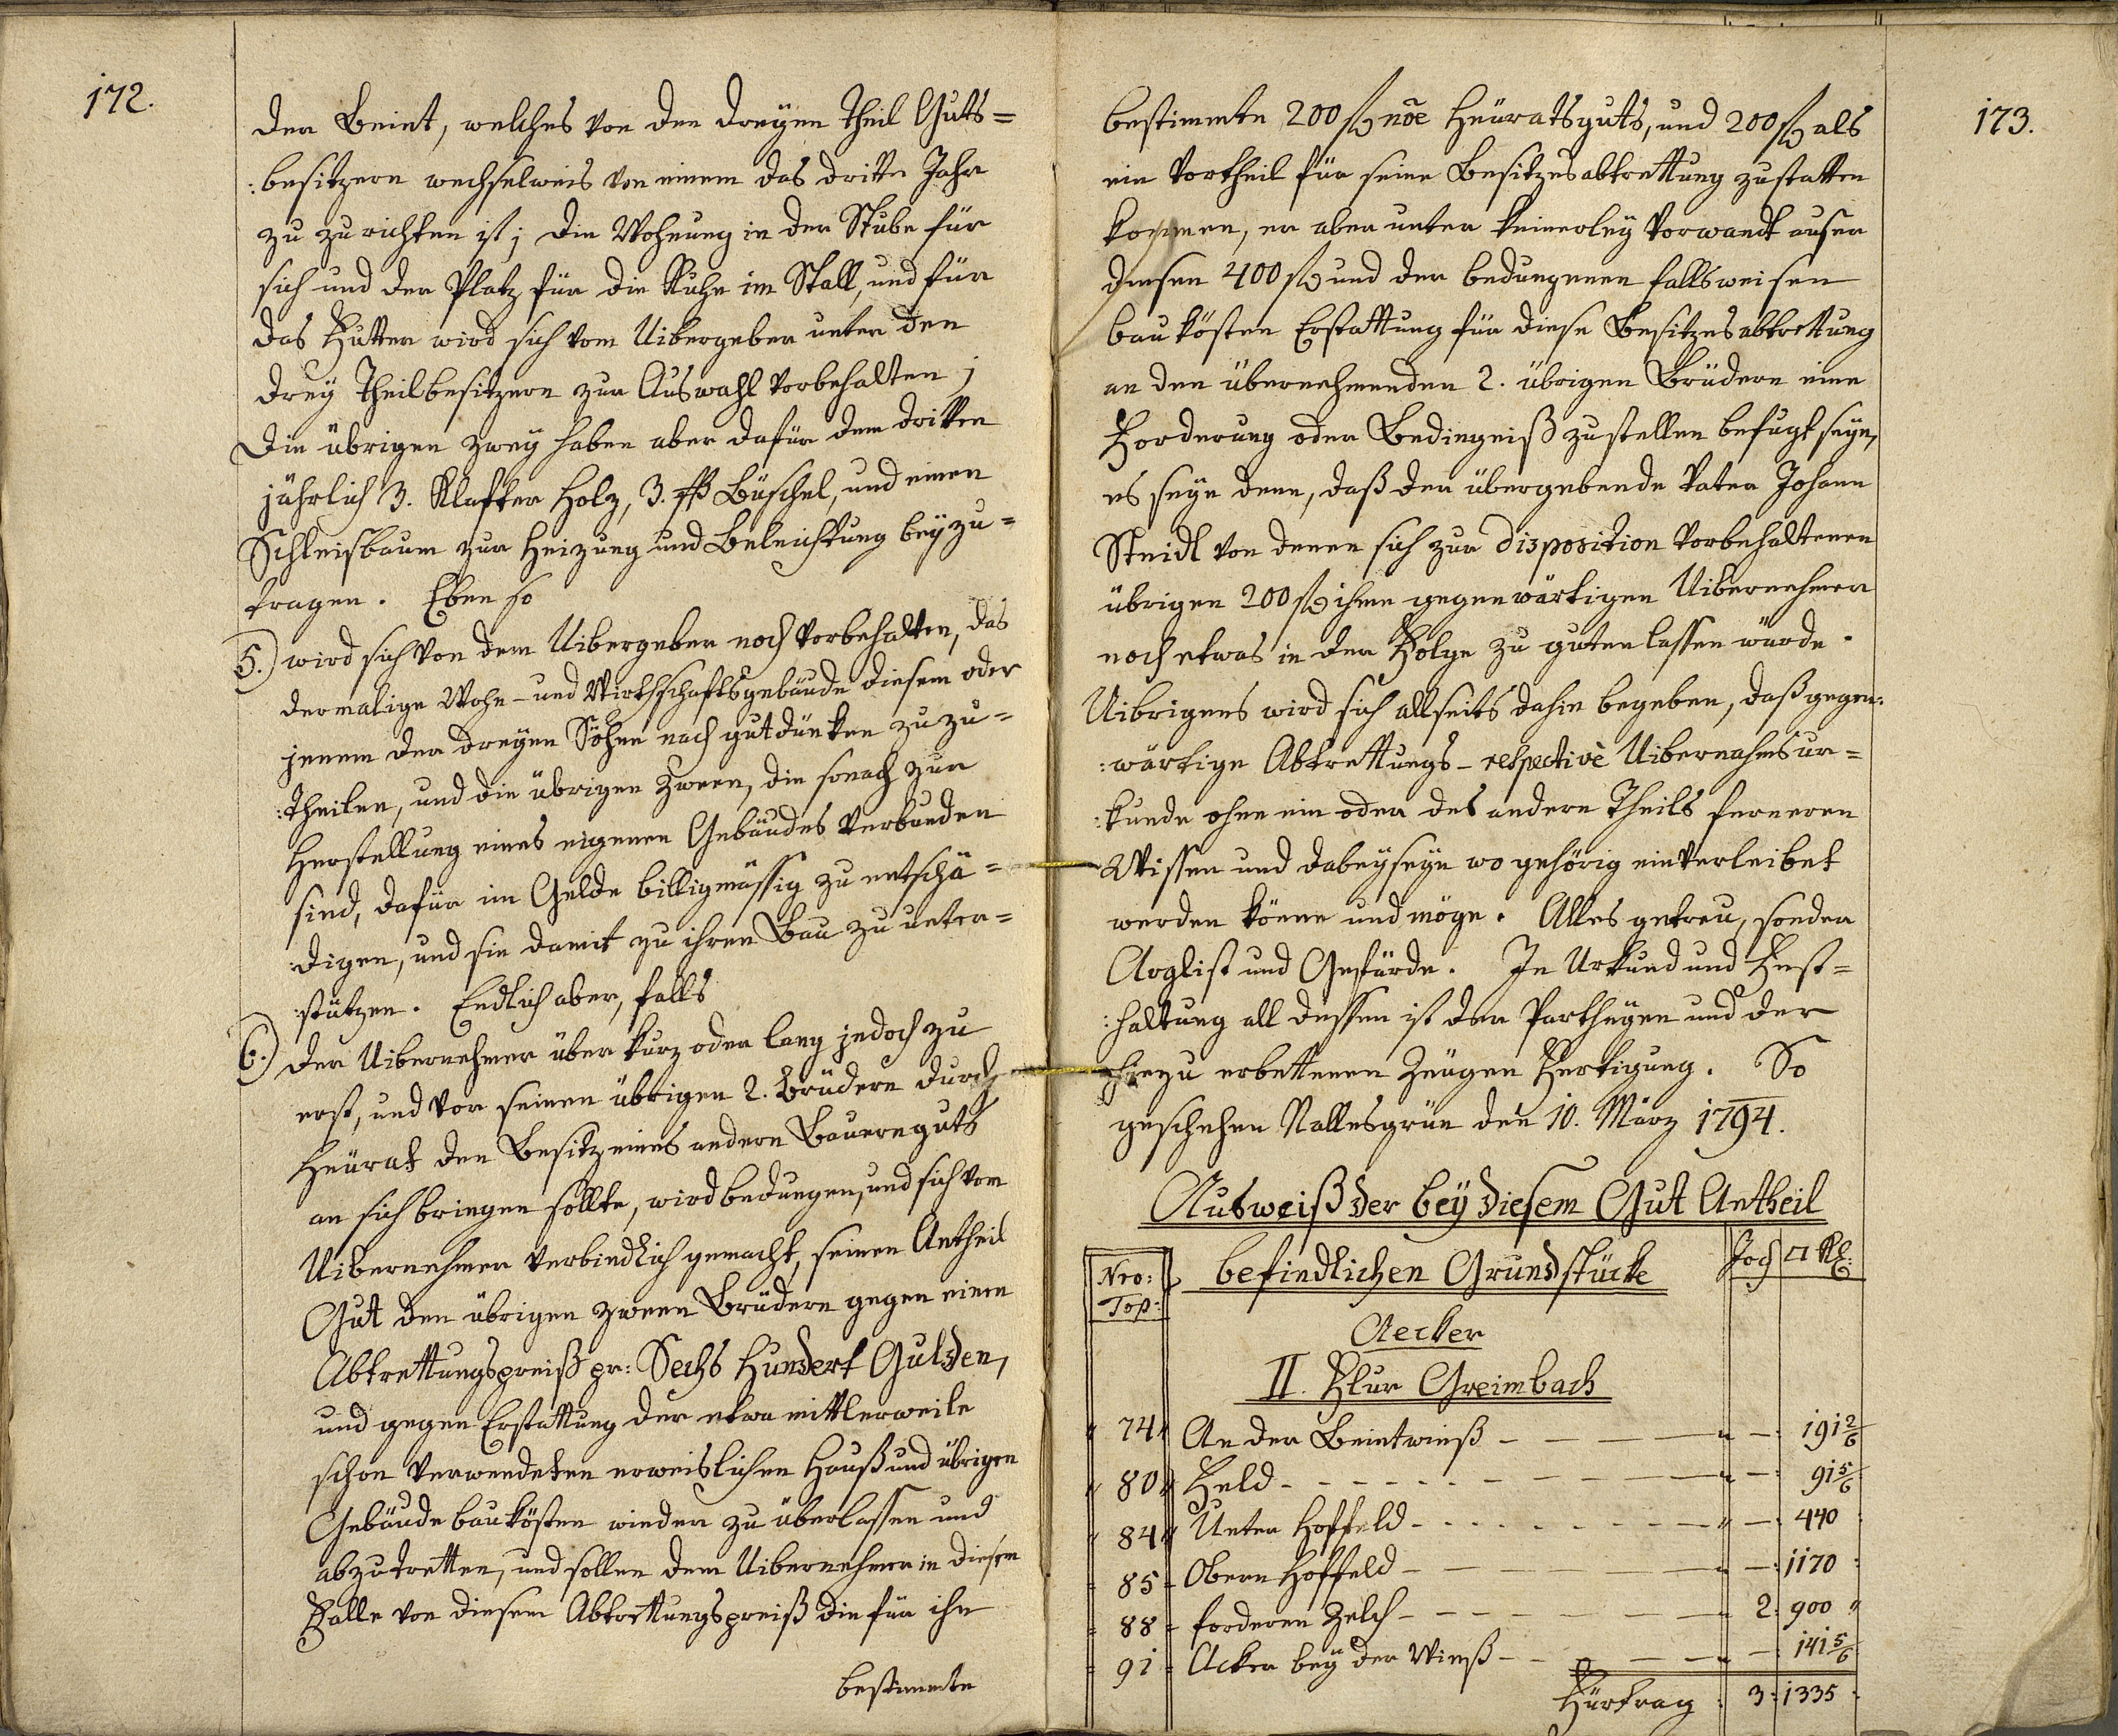 172.
der Beint, welches von den dreyen Theil Guts=
:besitzern wechselweis von einem das dritte Jahr
zu zurichten ist; die Wohnung in der Stube für
sich und der Platz für die Kuhe im Stall, und für
das Futter wird sich vom Uibergeber unter den
drey Theilbesitzern zur Auswahl vorbehalten;
Die übrigen zwey haben aber dafür dem dritten
jährlich 3. Klafter Holz, 3. ßß Büschel, und einen
Schleisbaum zur Heizung und Beleichtung beyzu=
tragen. Eben so
5.) wird sich von dem Uibergeber noch vorbehalten, das
dermalige Wohn- und Wirthschaftsgebäude diesem oder
jenem der dreyen Söhne nach gutdünken zuzu=
:theilen, und die übrigen Zween, die sonach zur
Herstellung eines eigenen Gebäudes verbunden
sind, dafür im Gelde billigmässig zu entschä=
:digen, und sie damit zu ihren Bau zu unter=
:stützen. Endlich aber, falls
6.) der Uibernehmer über kurz oder lang jedoch zu
erst, und vor seinen übrigen 2. Brüdern durch
Heürat den Besitz eines andern Bauernguts
an sich bringen sollte, wird bedungen, und sich vom
Uibernehmer verbindlich gemacht, seinen Antheil
Gut den übrigen zween Brüdern gegen einen
Abtrettungspreiß pr: Sechs Hundert Gulden,
und gegen Erstattung der etwa mittlerweile
schon verwendeten erweislichen Hauß und übrigen
Gebäude baukösten wieder zu überlassen und
abzutretten, und sollen dem Uibernehmer in diesem
Falle von diesem Abtrettungspreiß die für ihn
bestimmte
173.
bestimmte 200 fl nōe Heüratsguts, und 200 fl als
ein Vortheil für seine Besitzesabtrettung zustatten
kommen, er aber unter keinerley Vorwandt auser
diesen 400 fl und der bedungenen fallsweisen
baukösten Erstattung für diese Besitzesabtrettung
an den übernehmenden 2. übrigen Brüdern eine
Forderung oder Bedingniß zustellen befugt seyn,
es seye denn, daß der übergebende Vater Johann
Steidl von denen sich zur disposition vorbehaltenen
übrigen 200 fl ihme gegenwärtigen Uibernehmer
noch etwas in der Folge zu guten lassen würde.
Uibrigens wird sich allseits dahin begeben, daß gegen:
:wärtige Abtrettungs- respectivè Uibernahmsur=
:kunde ohne ein oder des andern Theils ferneren
Wissen und dabeyseyn wo gehörig einverleibet
werden könne und möge. Alles getreu, sonder
Arglist und Gefärde. In Urkund und Fest=
:haltung all dessen ist der Partheyen und der
hiezu erbettenen Zeugen Fertigung. So
geschehen Nallesgrün den 10. März 1794.
Ausweiß der bey diesem Gut Antheil
befindlichen Grundstücke
Nro: Top: Joch □ Kl:
Aecker
II. Flur Greimbach
74 An der Beintwieß — 191 2/6
80 Feld — 91 5/6
84 Unter Hoffeld — 440
85 Obern Hoffeld — 1170
88 fordern Zelch 2: 900
91 Acker bey der Wieß — 141 5/6
Fürtrag 3: 1335